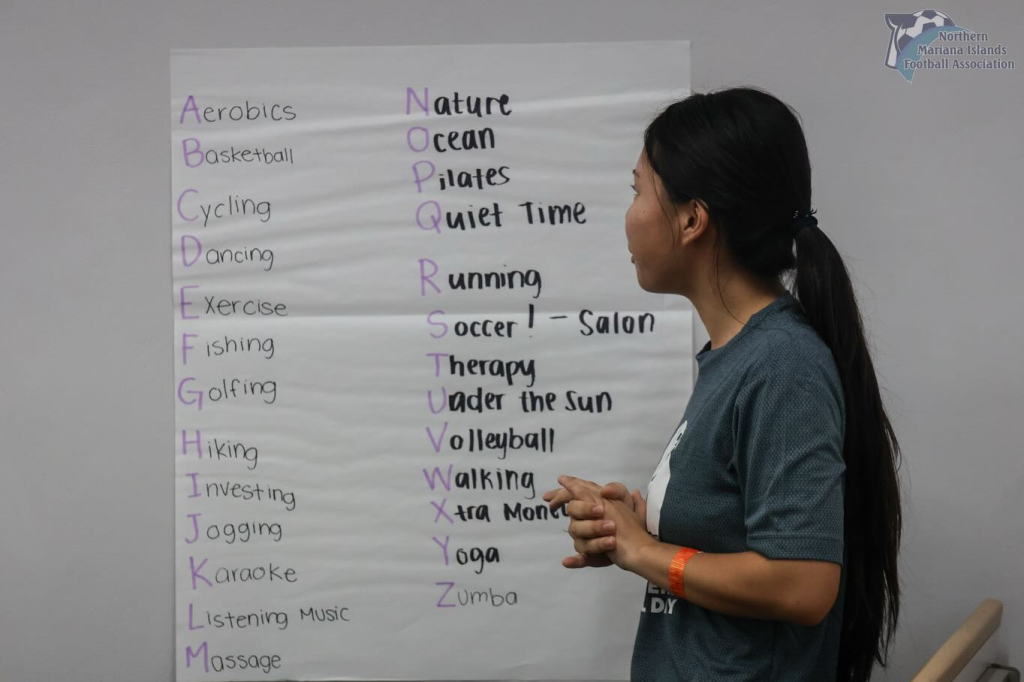 Northern
Mariana Islands
Football Association
Aerobics
Basketball
Cycling
Dancing
Exercise
Fishing
Golfing
Hiking
Investing
Jogging
Karaoke
Listening Music
Massage
Nature
Ocean
Pilates
Quiet Time
Running
Soccer! - Salon
Therapy
Under the Sun
Volleyball
Walking
Xtra
Yoga
Zumba
DAY